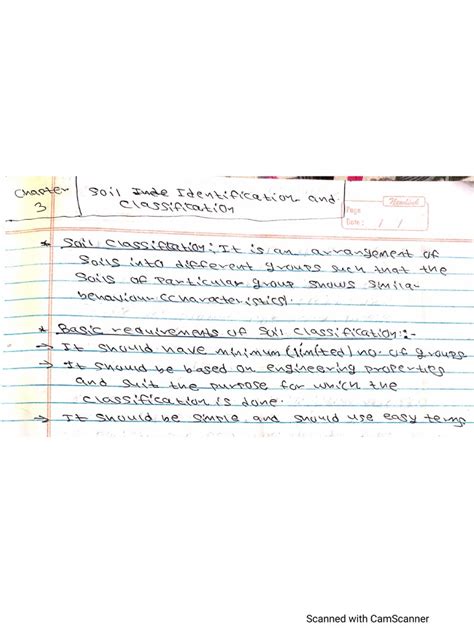 Chapter 3
Soil Inde Identification and
Classification
Page
Date: / /
* Soil Classification: It is an arrangement of
Soils into different groups such that the
Soils of Particular group shows similar
behaviour (characteristics).
* Basic requirements of Soil Classification:-
→ It should have minimum (limited) no. of groups
→ It should be based on engineering properties
and suit the purpose for which the
classification is done.
→ It should be simple and should use easy terms
Scanned with CamScanner